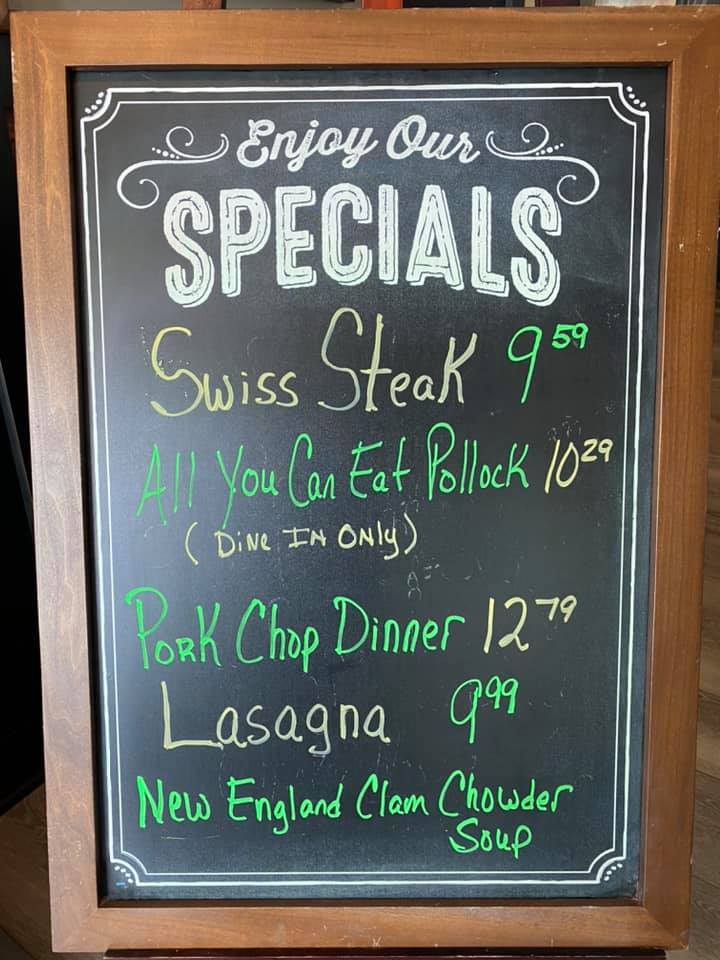 Enjoy Our
SPECIALS
Swiss Steak 9 59
All You Can Eat Pollock 10 29
(Dine In Only)
Pork Chop Dinner 12 79
Lasagna 9 99
New England Clam Chowder
Soup